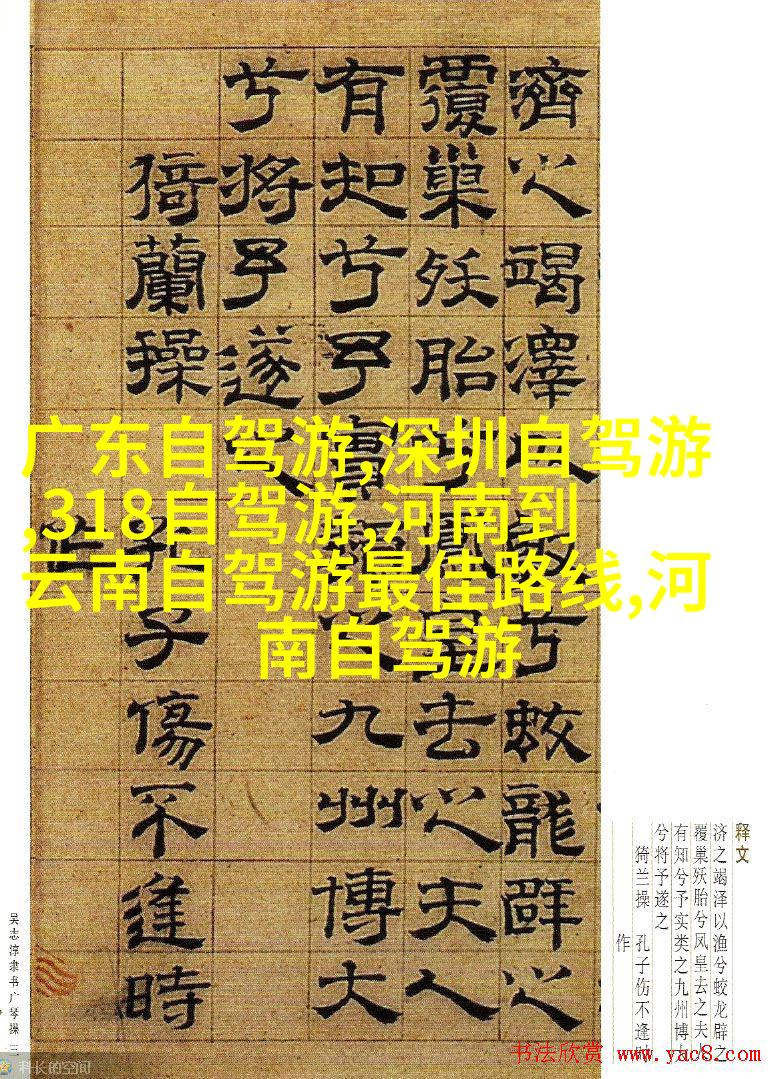 濟之竭澤以漁兮蛟龍辟之
覆巢殀胎兮鳳皇去之夫人
有知兮予實類之九州博大
兮將予遂之
猗蘭操 孔子傷不逢時
作
广东自驾游,深圳自驾游
,318自驾游,河南到
云南自驾游最佳路线,河
南自驾游
释文
济之竭泽以渔兮蛟龙辟之
覆巢殀胎兮凤皇去之夫
有知兮予实类之九州博
兮将予遂之
猗兰操 孔子伤不逢
作
吴志淳隶书广琴操 三
科长的空间
书法欣赏 www.yac8.com